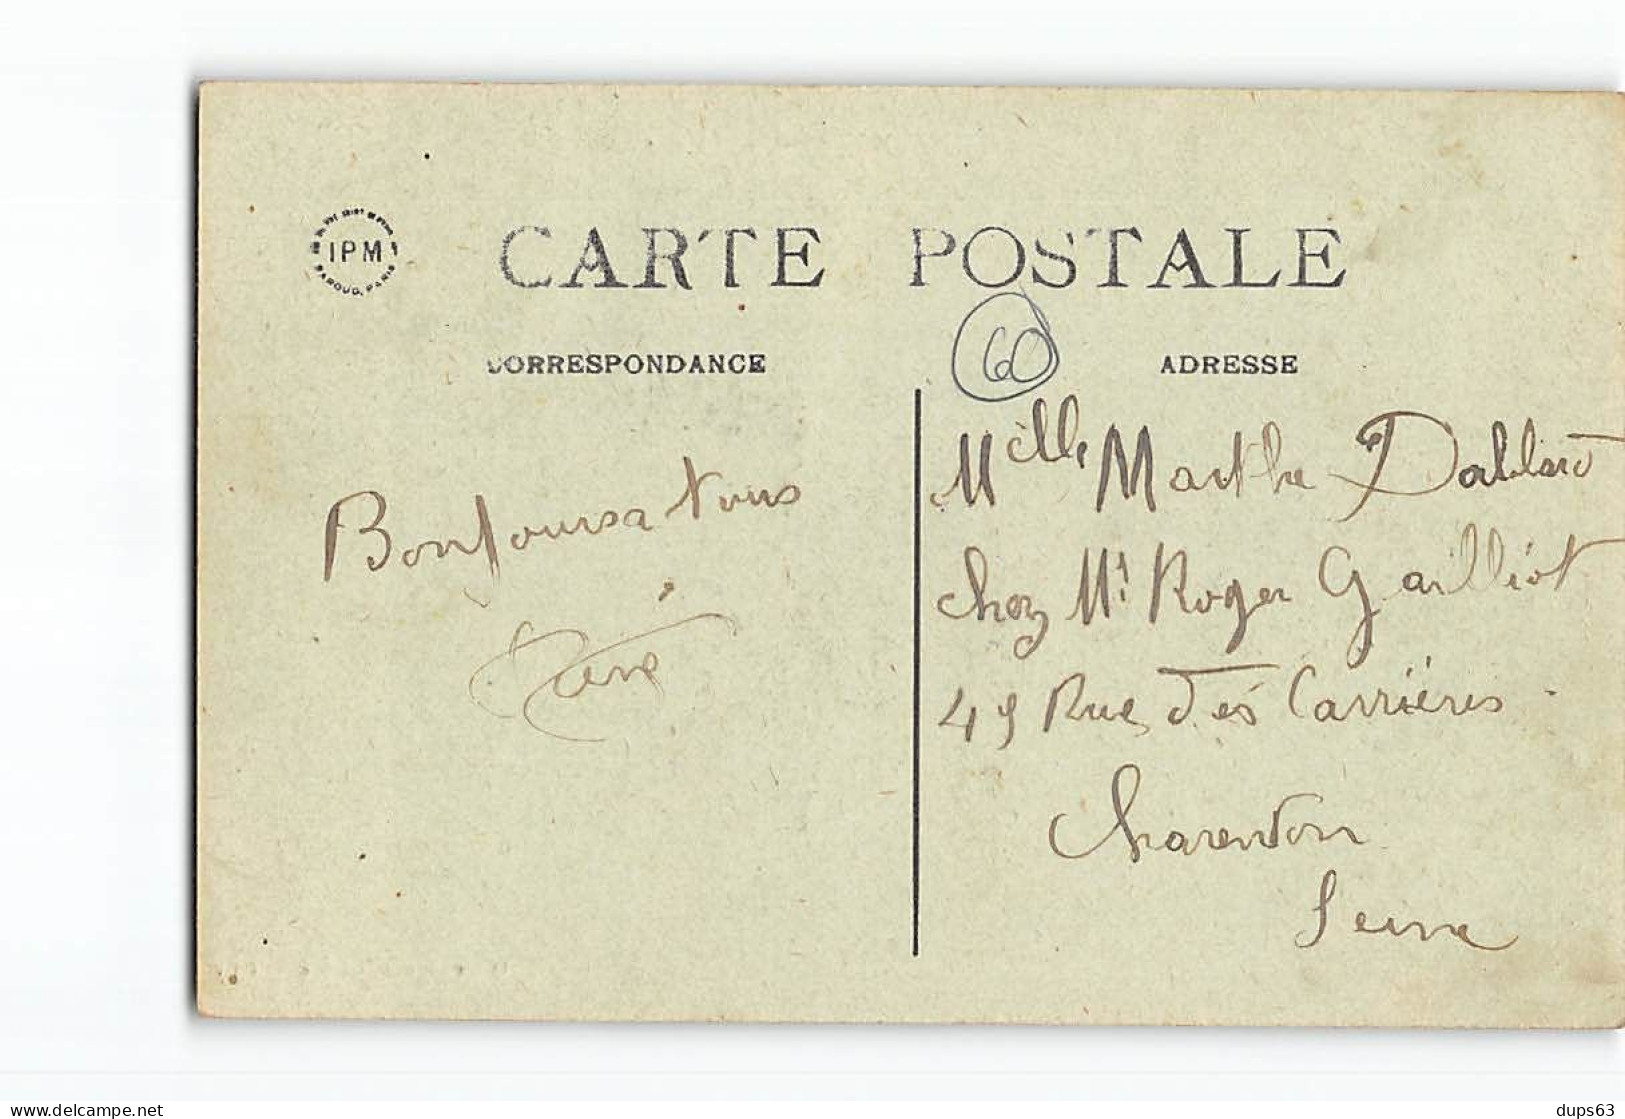 IPM
BAROUD, PARIS
CARTE POSTALE
CORRESPONDANCE
60
ADRESSE
Mlle Marthe Dallard
chez Mr Roger Gailliot
49 Rue des Carrières
Charenton
Seine
Bonjoursa tous
delcampe.net
dups63